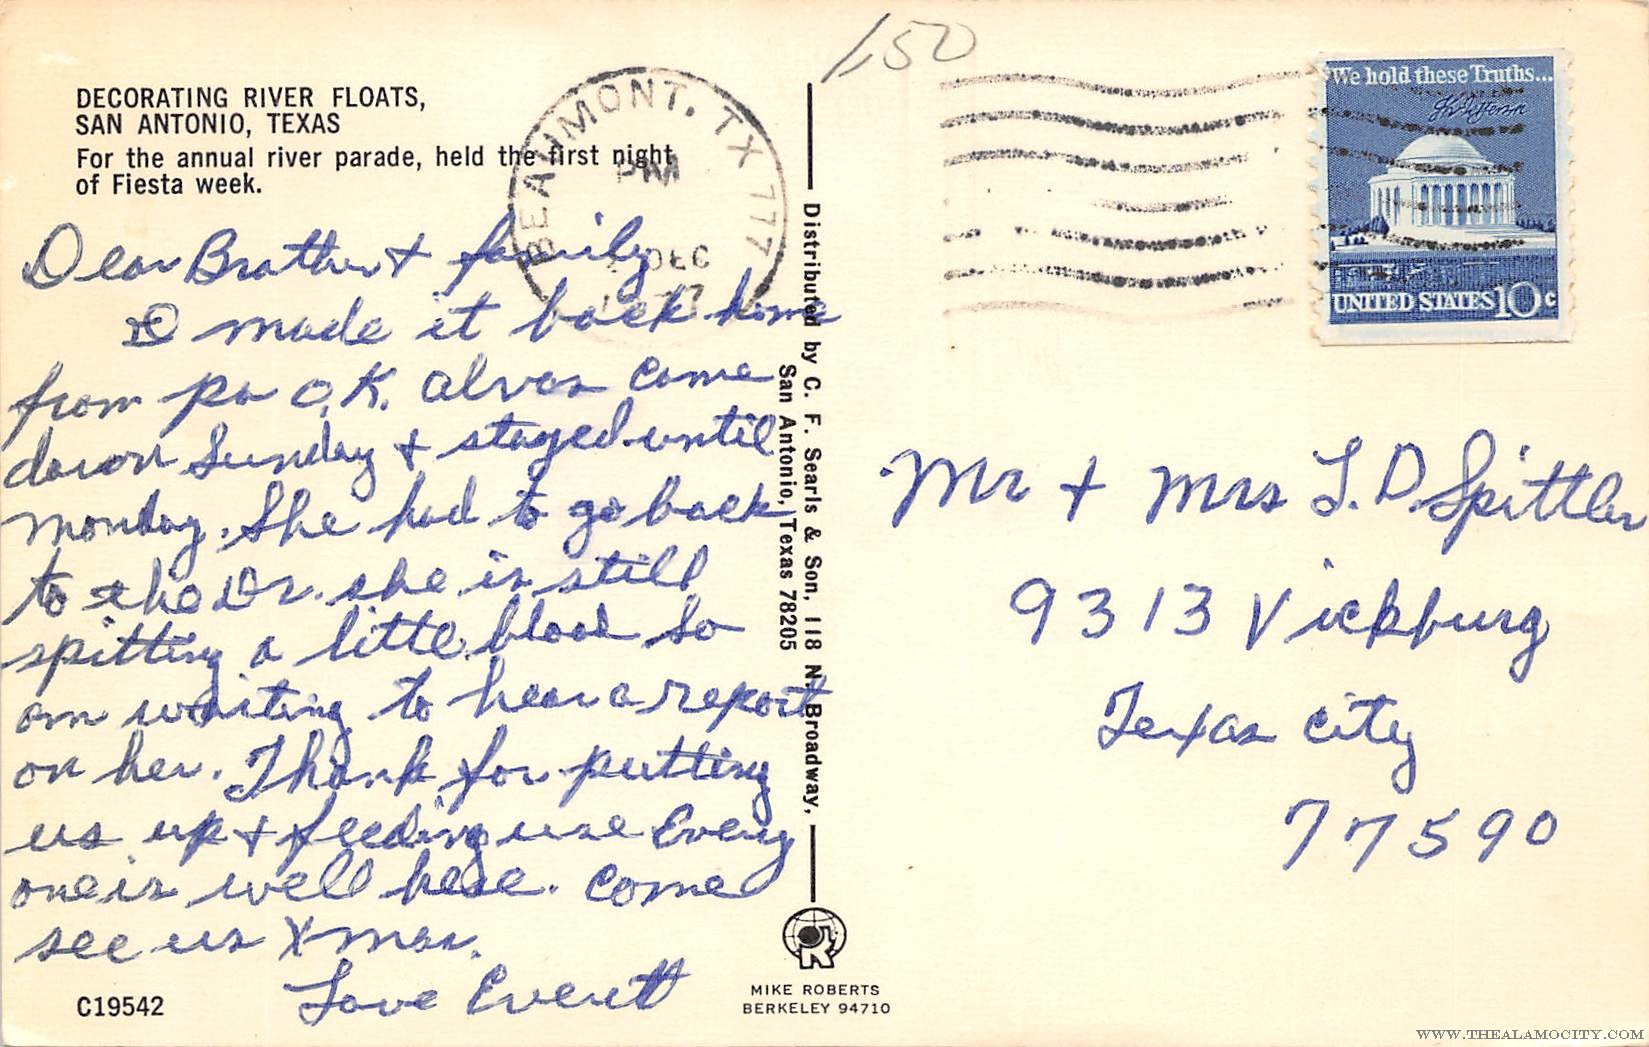 DECORATING RIVER FLOATS,
SAN ANTONIO, TEXAS
For the annual river parade, held the first night
of Fiesta week.
Dear Brother + family
I made it back home
from pa O.K. Alvas came
down Sunday + stayed until
Monday. She had to go back
to the Dr. she is still
spitting a little blood So
am waiting to hear a report
on her. Thank for putting
us up + feeding use Every
one is well here. Come
see us X-mas.
Love Everett
C19542
BEAUMONT, TX 777
PM
DEC
Distributed by C. F. Searls & Son, 118 N. Broadway,
San Antonio, Texas 78205
MIKE ROBERTS
BERKELEY 94710
1,50
We hold these Truths...
Th Jefferson
UNITED STATES 10c
Mr + Mrs L. D. Spittler
9313 Vickburg
Texas City
77590
WWW.THEALAMOCITY.COM